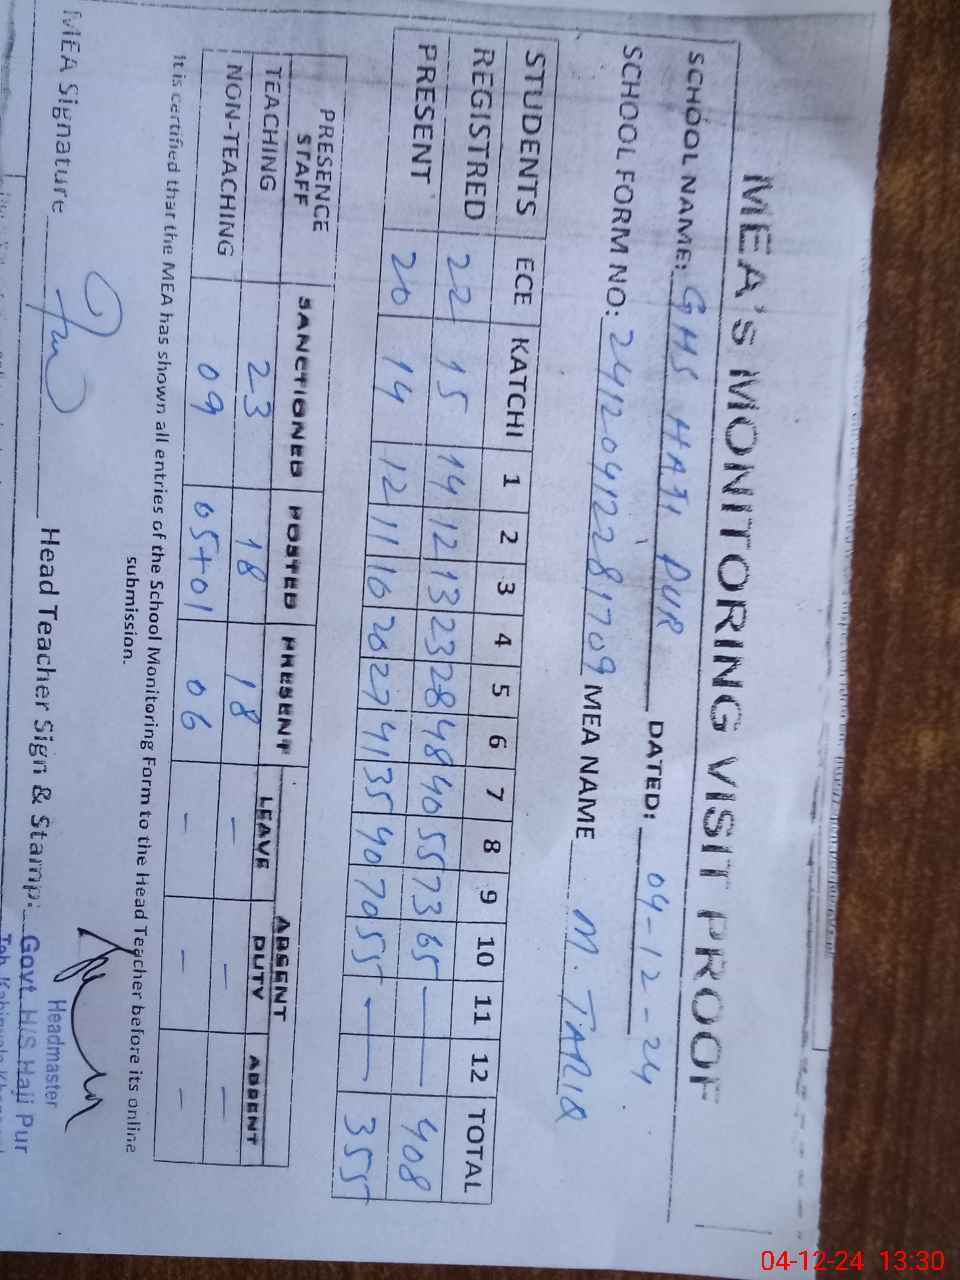 MEA'S MONITORING VISIT PROOF
SCHOOL NAME: GHS HAJI PUR DATED: 04-12-24
SCHOOL FORM NO: 24120412281709 MEA NAME M. TARIQ
STUDENTS ECE KATCHI 1 2 3 4 5 6 7 8 9 10 11 12 TOTAL
REGISTRED 22 15 14 12 13 23 28 48 40 55 73 65 — — 408
PRESENT 20 14 12 11 10 20 27 41 35 40 70 55 — — 355
PRESENCE STAFF SANCTIONED POSTED PRESENT ABSENT
LEAVE DUTY ABSENT
TEACHING 23 18 18 - - -
NON-TEACHING 09 05+01 06 - - -
It is certified that the MEA has shown all entries of the School Monitoring Form to the Head Teacher before its online
submission.
MEA Signature Head Teacher Sign & Stamp:
Headmaster
Govt. H/S Haji Pur
04-12-24 13:30